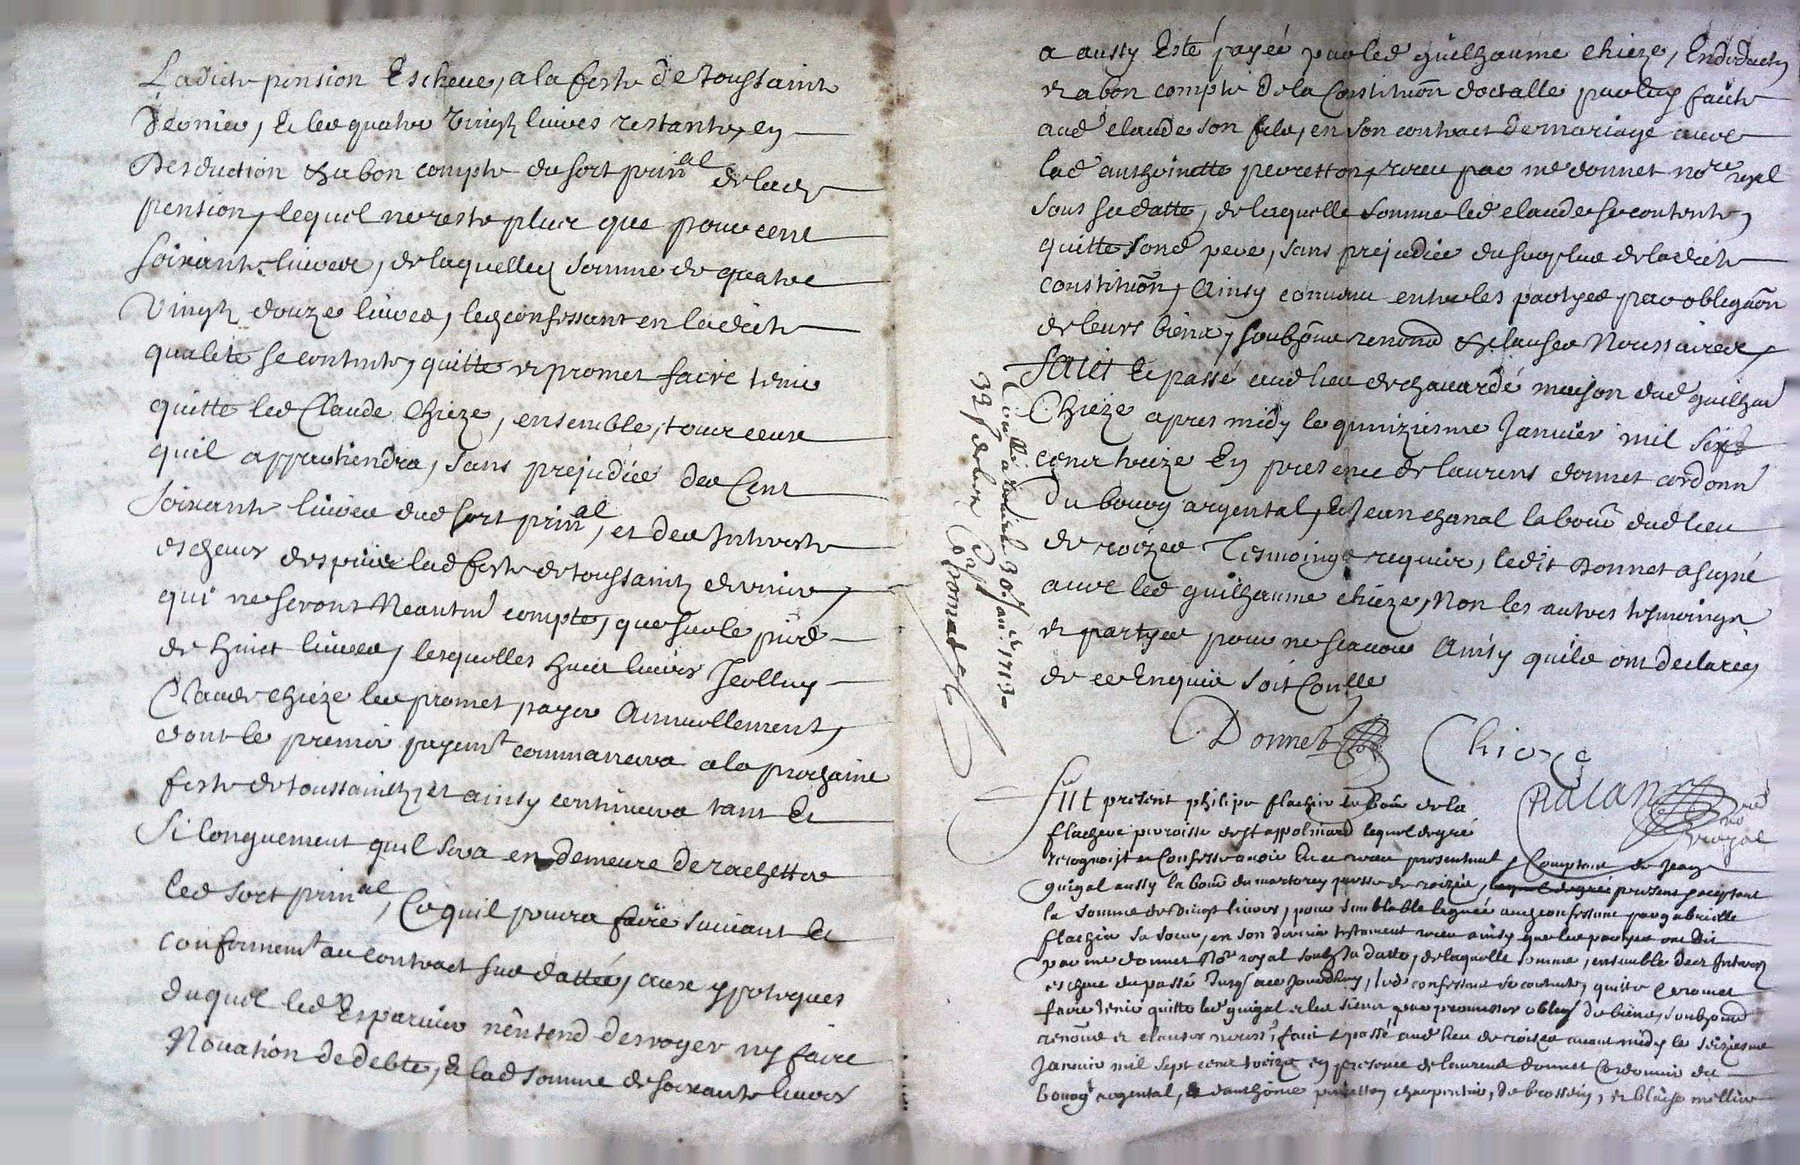 Ladicte pension Escheue, a la feste de toussaintz
dernier, & les quatre vingtz liures restantes, en
Desduction & a bon compte du sort prin.al de lad.
pension, lequel ne reste plus que pour cent
soixante liures, de laquelle somme de quatre
Vingtz douze liures, led confessant en ladicte
qualité se contente, quitte et promet faire tenir
quitte led Claude Chieze, ensemble, tous ceux
quil appartiendra, sans prejudice des Cent
soixante liures dud sort prin.al, et des Interests
escheus despuis lad feste de toussaintz dernier,
qui ne seront Neantm.t comptes, que sur le pied
de huict liures, lesquelles huict liures Jcelluy
Claude chieze les promet payer Annuellement,
dont le premier payem.t commancera a la prochaine
feste de toussaintz, et ainsy continuera tant &
Si longuement quil sera en demeure de rachetter
led sort prin.al, Ce quil pourra faire suiuant &
conformem.t au contract sus datté, aux ypoteques
duquel led Esparuier n'entend desroger ny faire
Nouation de debte, & lad somme de soixante liures
a aussy Esté payée par led guilhaume chieze, En deduction
et a bon compte de la Constitution dotalle par luy faicte
aud claude son filz, en son contract de mariage auec
lad anthoinette peyretton, receu par me donnet no.re royal
sous sa datte, de laquelle somme led claude se contente,
quitte sond pere, sans prejudice du surplus de ladicte
constitution, Ainsy conuenu entre les partyes par obliga.on
de leurs biens, soubz.ons renon.ons & clauses Necessaires,
Faict & passé aud lieu de chauardé maison dud guilhau.
Chieze apres midy le quinziesme Januier mil sept
cent treize En presence de laurens donnet cordonn.
du bourg argental, & Jean chanal labou.r dud lieu
de roizee Tesmoings requis, ledit Donnet a signé
auec led guilhaume chieze, Non les autres tesmoings
et partyes pour ne scauoir Ainsy quils ont declarez
de ce Enquis Soit Con.llé
Donnet Chieze
no.re royal
Fut present philipe flachier labou.r de la
flachere parroisse de st appolinard lequel de gré
recognoist et Confesse auoir Eu et receu presentement Comptant de Jean
guigal aussy labou.r du martorey paroisse de roizee, lequel de gré present acceptant
la somme de Vingt liures, pour semblable leguée aud confessant par gabrielle
flachier sa soeur, en son dernier testament receu ainsy que les partyes ont dit
par me donnet No.re royal soubz sa datte, de laquelle somme, ensemble des Interestz
escheus du passé Jusques a ce jourdhuy, led confessant se contente, quitte & promet
faire tenir quitte led guigal & les siens par promesse oblig. de biens, soubz.ons
renon.ons et clauses necess.res, faict & passé aud lieu de roizee auant midy le seiziesme
Januier mil sept cent treize en presence de laurens donnet Cordonnier du
bourg argental, & d'anthoine peyretton charpentier, de brossein, et blaise millier
Con.llé a bourg 30.e jan.er 1713